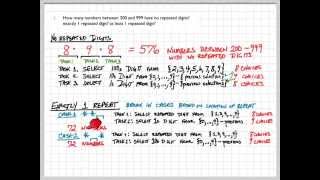 1. How many numbers between 200 and 999 have no repeated digits?
exactly 1 repeated digit? at least 1 repeated digit?
NO REPEATED DIGITS
8 · 9 · 8 = 576 NUMBERS BETWEEN 200-999
WITH NO REPEATED DIGITS
TASK 1 TASK 2 TASK 3
TASK 1. SELECT DIGIT FROM {2,3,4,5,6,7,8,9} 8 CHOICES
TASK 2. SELECT DIGIT FROM 9 CHOICES
TASK 3. SELECT DIGIT FROM 8 CHOICES
EXACTLY 1 REPEAT BREAK IN CASES BASED ON LOCATION OF REPEAT
CASE 1 TASK 1. SELECT REPEATED DIGIT FROM {2,3,...,9} 8 CHOICES
TASK 2. SELECT DIGIT FROM {0,...,9} - previous 9 CHOICES
72 NUMBERS
CASE 2 TASK 1. SELECT REPEATED DIGIT FROM {2,3,...,9} 8 CHOICES
TASK 2. SELECT DIGIT FROM {0,...,9} - previous 9 CHOICES
72 NUMBERS